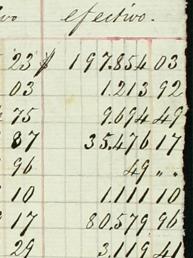 vo efectivo.
23 $ 197.854 03
03 1.213 92
75 9.694 49
87 35.476 17
96 49 " "
10 1.111 10
17 80.579 96
29 3.119 41